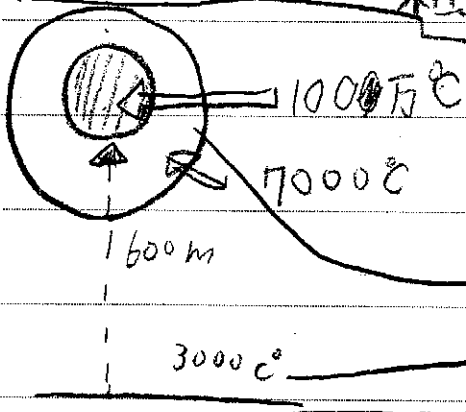 100万℃
7000℃
600m
3000c°